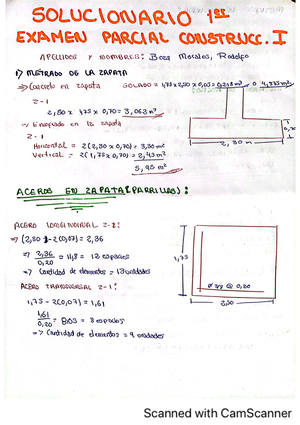 SOLUCIONARIO 1er
EXAMEN PARCIAL CONSTRUCC. I
APELLIDOS y NOMBRES: Boza Morales, Rodolfo
1) METRADO DE LA ZAPATA
=> Concreto en zapata SOLADO = 1,75 x 2,50 x 0,05 = 0,218 m³
Z-1
2,50 x 1,75 x 0,70 = 3,063 m³
=> Encofrado en la zapata
Z-1
Horizontal = 2(2,50 x 0,70) = 3,50 m²
Vertical = 2(1,75 x 0,70) = 2,45 m²
5,95 m²
2,50 m
ACEROS EN ZAPATA (PARRILLAS):
ACERO LONGITUDINAL
=> (2,50) - 2(0,07) = 2,36
=> 2,36 / 0,20 = 11,8 = 12 espacios
=> Cantidad de elementos = 13 unidades
ACERO TRANSVERSAL Z-1:
1,75 - 2(0,07) = 1,61
1,61 / 0,20 = 8,05 = 8 espacios
=> Cantidad de elementos = 9 unidades
1,75
@ 0,20
2,50
Scanned with CamScanner